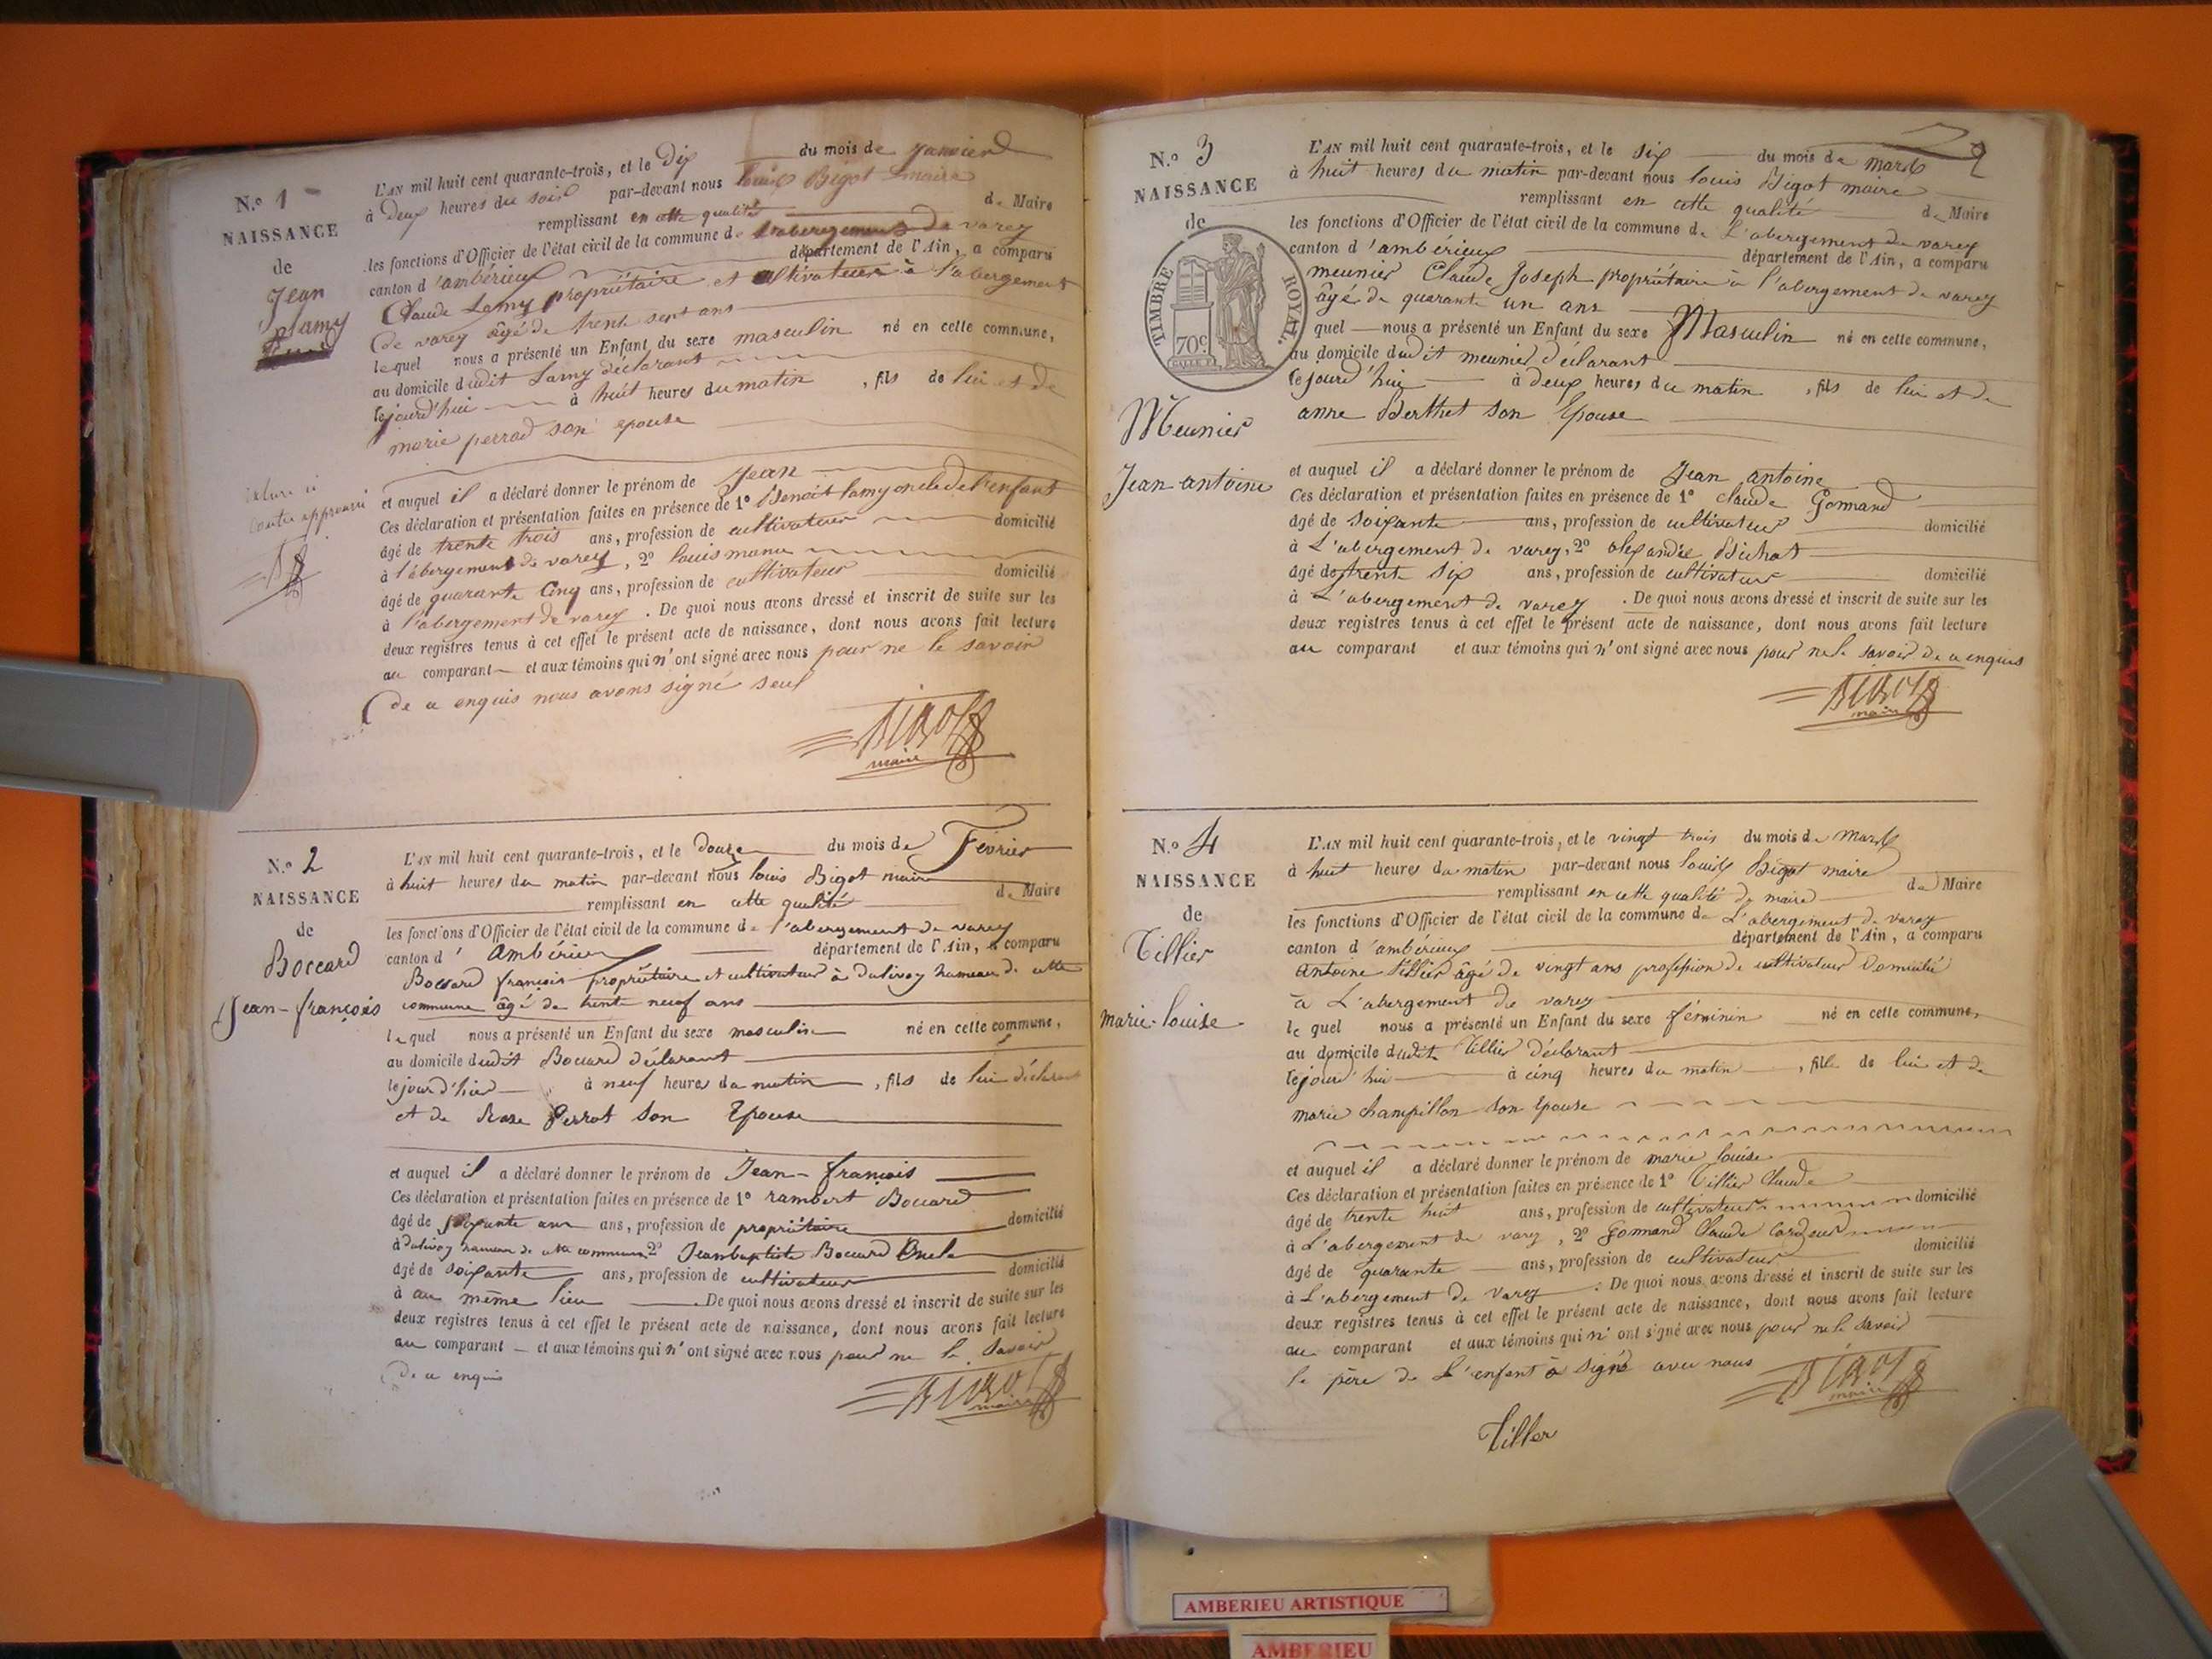 N.º 1
NAISSANCE
de
Jean
Lamy
L'AN mil huit cent quarante-trois, et le Dix du mois de janvier
à Deux heures du soir par-devant nous louis Bigot maire
remplissant en cette qualité de Maire
les fonctions d'Officier de l'état civil de la commune de l'abergement de varey
canton d'ambérieux département de l'Ain, a comparu
Claude Lamy propriétaire et cultivateur à l'abergement
de varey âgé de trente sept ans
lequel nous a présenté un Enfant du sexe masculin né en cette commune,
au domicile dudit Lamy déclarant
le jourd'hui à huit heures du matin, fils de lui et de
marie perrad son epouse
et auquel il a déclaré donner le prénom de Jean
Ces déclaration et présentation faites en présence de 1º Benoit lamy oncle de l'enfant
âgé de trente trois ans, profession de cultivateur domicilié
à l'abergement de varey, 2º louis
âgé de quarante Cinq ans, profession de cultivateur domicilié
à l'abergement de varey. De quoi nous avons dressé et inscrit de suite sur les
deux registres tenus à cet effet le présent acte de naissance, dont nous avons fait lecture
au comparant et aux témoins qui n'ont signé avec nous pour ne le savoir
de ce enquis nous avons signé seul
BIGOT
maire
N.º 2
NAISSANCE
de
Boccard
Jean-françois
L'AN mil huit cent quarante-trois, et le douze du mois de Février
à huit heures du matin par-devant nous louis Bigot maire
remplissant en cette qualité de Maire
les fonctions d'Officier de l'état civil de la commune de l'abergement de varey
canton d'Ambérieux département de l'Ain, a comparu
Boccard françois propriétaire et cultivateur à dalivoy hameau de cette
commune âgé de trente neuf ans
lequel nous a présenté un Enfant du sexe masculin né en cette commune,
au domicile dudit Boccard déclarant
le jour d'hier à neuf heures du matin, fils de lui déclarant
et de Perrot son Epouse
et auquel il a déclaré donner le prénom de Jean-françois
Ces déclaration et présentation faites en présence de 1º rambert Boccard
âgé de ans, profession de propriétaire domicilié
à dalivoy hameau de cette commune 2º Jean baptiste Boccard Oncle
âgé de soixante ans, profession de cultivateur domicilié
à au même lieu. De quoi nous avons dressé et inscrit de suite sur les
deux registres tenus à cet effet le présent acte de naissance, dont nous avons fait lecture
au comparant et aux témoins qui n'ont signé avec nous pour ne le savoir
de ce enquis
BIGOT
maire
N.º 3
NAISSANCE
de
TIMBRE ROYAL
70c
Meunier
Jean-antoine
L'AN mil huit cent quarante-trois, et le six du mois de mars
à huit heures du matin par-devant nous louis Bigot maire
remplissant en cette qualité de Maire
les fonctions d'Officier de l'état civil de la commune de L'abergement de varey
canton d'ambérieux département de l'Ain, a comparu
meunier Claude Joseph propriétaire à l'abergement de varey
âgé de quarante un ans
quel nous a présenté un Enfant du sexe Masculin né en cette commune,
au domicile dudit meunier déclarant
le jourd'hui à deux heures du matin, fils de lui et de
anne Berthet son Epouse
et auquel il a déclaré donner le prénom de Jean antoine
Ces déclaration et présentation faites en présence de 1º claude Gormand
âgé de soixante ans, profession de cultivateur domicilié
à L'abergement de varey, 2º alexandre Bichat
âgé de trente six ans, profession de cultivateur domicilié
à L'abergement de varey. De quoi nous avons dressé et inscrit de suite sur les
deux registres tenus à cet effet le présent acte de naissance, dont nous avons fait lecture
au comparant et aux témoins qui n'ont signé avec nous pour ne le savoir de ce enquis
BIGOT
maire
N.º 4
NAISSANCE
de
Tillier
marie-louise
L'AN mil huit cent quarante-trois, et le vingt trois du mois de mars
à huit heures du matin par-devant nous louis Bigot maire
remplissant en cette qualité de maire de Maire
les fonctions d'Officier de l'état civil de la commune de L'abergement de varey
canton d'ambérieux département de l'Ain, a comparu
antoine tillier âgé de vingt ans profession de cultivateur Domicilié
à L'abergement de varey
le quel nous a présenté un Enfant du sexe féminin né en cette commune,
au domicile dudit Tillier déclarant
le jourd'hui à cinq heures du matin, fille de lui et de
marie champillon son Epouse
et auquel il a déclaré donner le prénom de marie louise
Ces déclaration et présentation faites en présence de 1º Tillier Claude
âgé de trente huit ans, profession de cultivateur domicilié
à L'abergement de varey, 2º Gormand Claude Cardeur
âgé de quarante ans, profession de cultivateur domicilié
à L'abergement de varey. De quoi nous avons dressé et inscrit de suite sur les
deux registres tenus à cet effet le présent acte de naissance, dont nous avons fait lecture
au comparant et aux témoins qui n'ont signé avec nous pour ne le savoir
le père de L'enfant à signé avec nous
BIGOT
maire
Tiller
AMBERIEU ARTISTIQUE
AMBERIEU